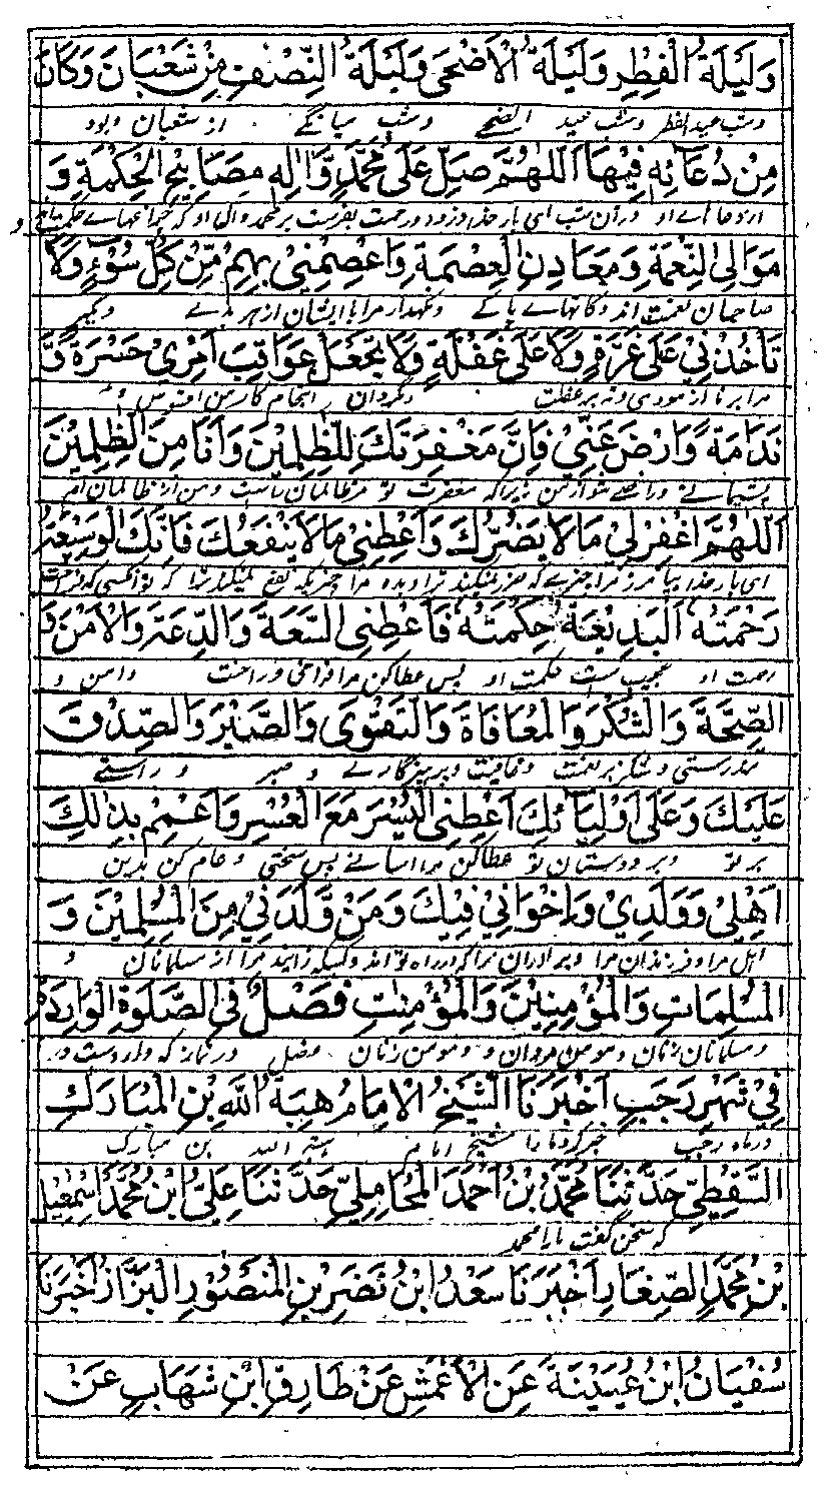 وَلَيْلَةُ الْفِطْرِ وَلَيْلَةُ الْاَضْحٰى وَلَيْلَةُ النِّصْفِ مِنْ شَعْبَانَ وَكَانَ
وشب عید الفطر وشب عید الضحی وشب میانگے از شعبان وبود
مِنْ دُعَائِهٖ فِيْهَا اَللّٰهُمَّ صَلِّ عَلٰى مُحَمَّدٍ وَّاٰلِهٖ مَصَابِيْحِ الْحِكْمَةِ وَ
از دعاے او درآن شب ای بار خدا درود ورحمت بفرست بر محمد وآل او که چراغهاے حکمت
مَوَالِى النِّعْمَةِ وَمَعَادِنِ الْعِصْمَةِ وَاعْصِمْنِيْ بِهِمْ مِّنْ كُلِّ سُوْءٍ وَلَا
صاحبان نعمت اند وکانهاے پاکے ونگهدار مرا با ایشان از هر بدے ومگیر
تَأْخُذْنِيْ عَلٰى غِرَّةٍ وَلَا عَلٰى غَفْلَةٍ وَلَا تَجْعَلْ عَوَاقِبَ اَمْرِيْ حَسْرَةً وَّ
مرا بر ناآزمودی ونه بر غفلت ومگردان انجام کار من افسوس و
نَدَامَةً وَارْضَ عَنِّيْ فَاِنَّ مَغْفِرَتَكَ لِلظّٰلِمِيْنَ وَاَنَا مِنَ الظّٰلِمِيْنَ
پشیمانے وراضے شو از من زیراکه مغفرت تو مر ظالمان راست ومن از ظالمان ام
اَللّٰهُمَّ اغْفِرْ لِيْ مَا لَا يَضُرُّكَ وَاَعْطِنِيْ مَا لَا يَنْفَعُكَ فَاِنَّكَ الْوَسِيْعَةُ
ای بار خدا بیامرز مرا چیزے که ضرر نمیکند ترا وبده مرا چیزیکه نفع نمیکند ترا که تو
رَحْمَتُهٗ الْبَدِيْعَةُ حِكْمَتُهٗ فَاَعْطِنِى السَّعَةَ وَالدِّعَةَ وَالْاَمْنَ وَ
رحمت او عجیب ست حکمت او پس عطا کن مرا فراخی وراحت وامن و
الصِّحَّةَ وَالشُّكْرَ وَالْمُعَافَاةَ وَالتَّقْوٰى وَالصَّبْرَ وَالصِّدْقَ
تندرستی وشکر بر نعمت وعافیت وپرهیزگارے وصبر وراستے
عَلَيْكَ وَعَلٰى اَوْلِيَائِكَ اَعْطِنِى الْيُسْرَ مَعَ الْعُسْرِ وَاعْمِمْ بِذٰلِكَ
بر تو وبر دوستان تو عطا کن مرا آسانے پس سختی وعام کن بدین
اَهْلِيْ وَوَلَدِيْ وَاِخْوَانِيْ فِيْكَ وَمَنْ وَّلَدَنِيْ مِنَ الْمُسْلِمِيْنَ وَ
اهل مرا وفرزندان مرا وبرادران مرا که در راه تو اند وکسیکه زایند مرا از مسلمانان و
الْمُسْلِمَاتِ وَالْمُؤْمِنِيْنَ وَالْمُؤْمِنٰتِ فَصْلٌ فِى الصَّلٰوةِ الْوَارِدَةِ
ومسلمانان زنان ومومن مردان ومومن زنان فصل در نماز که وارد ست در
فِيْ شَهْرِ رَجَبٍ اَخْبَرَنَا الشَّيْخُ الْاِمَامُ هِبَةُ اللهِ بْنِ الْمُبَارَكِ
در ماه رجب خبر کرد ما را شیخ امام هبة الله بن مبارک
السَّقَطِيُّ حَدَّثَنَا مُحَمَّدُ بْنُ اَحْمَدَ الْمَحَامِلِيّ حَدَّثَنَا عَلِيُّ ابْنُ مُحَمَّدِ اسْمٰعِيْلَ
که سخن گفت بابا محمد
بْنِ مُحَمَّدِ الصِّغَارِ اَخْبَرَنَا سَعْدُ ابْنُ نَضَرِ بْنِ الْمَنْصُوْرِ الْبَزَّازُ اَخْبَرَنَا
سُفْيَانُ ابْنُ عُيَيْنَةَ عَنِ الْاَعْمَشِ عَنْ طَارِقِ ابْنِ شِهَابٍ عَنْ